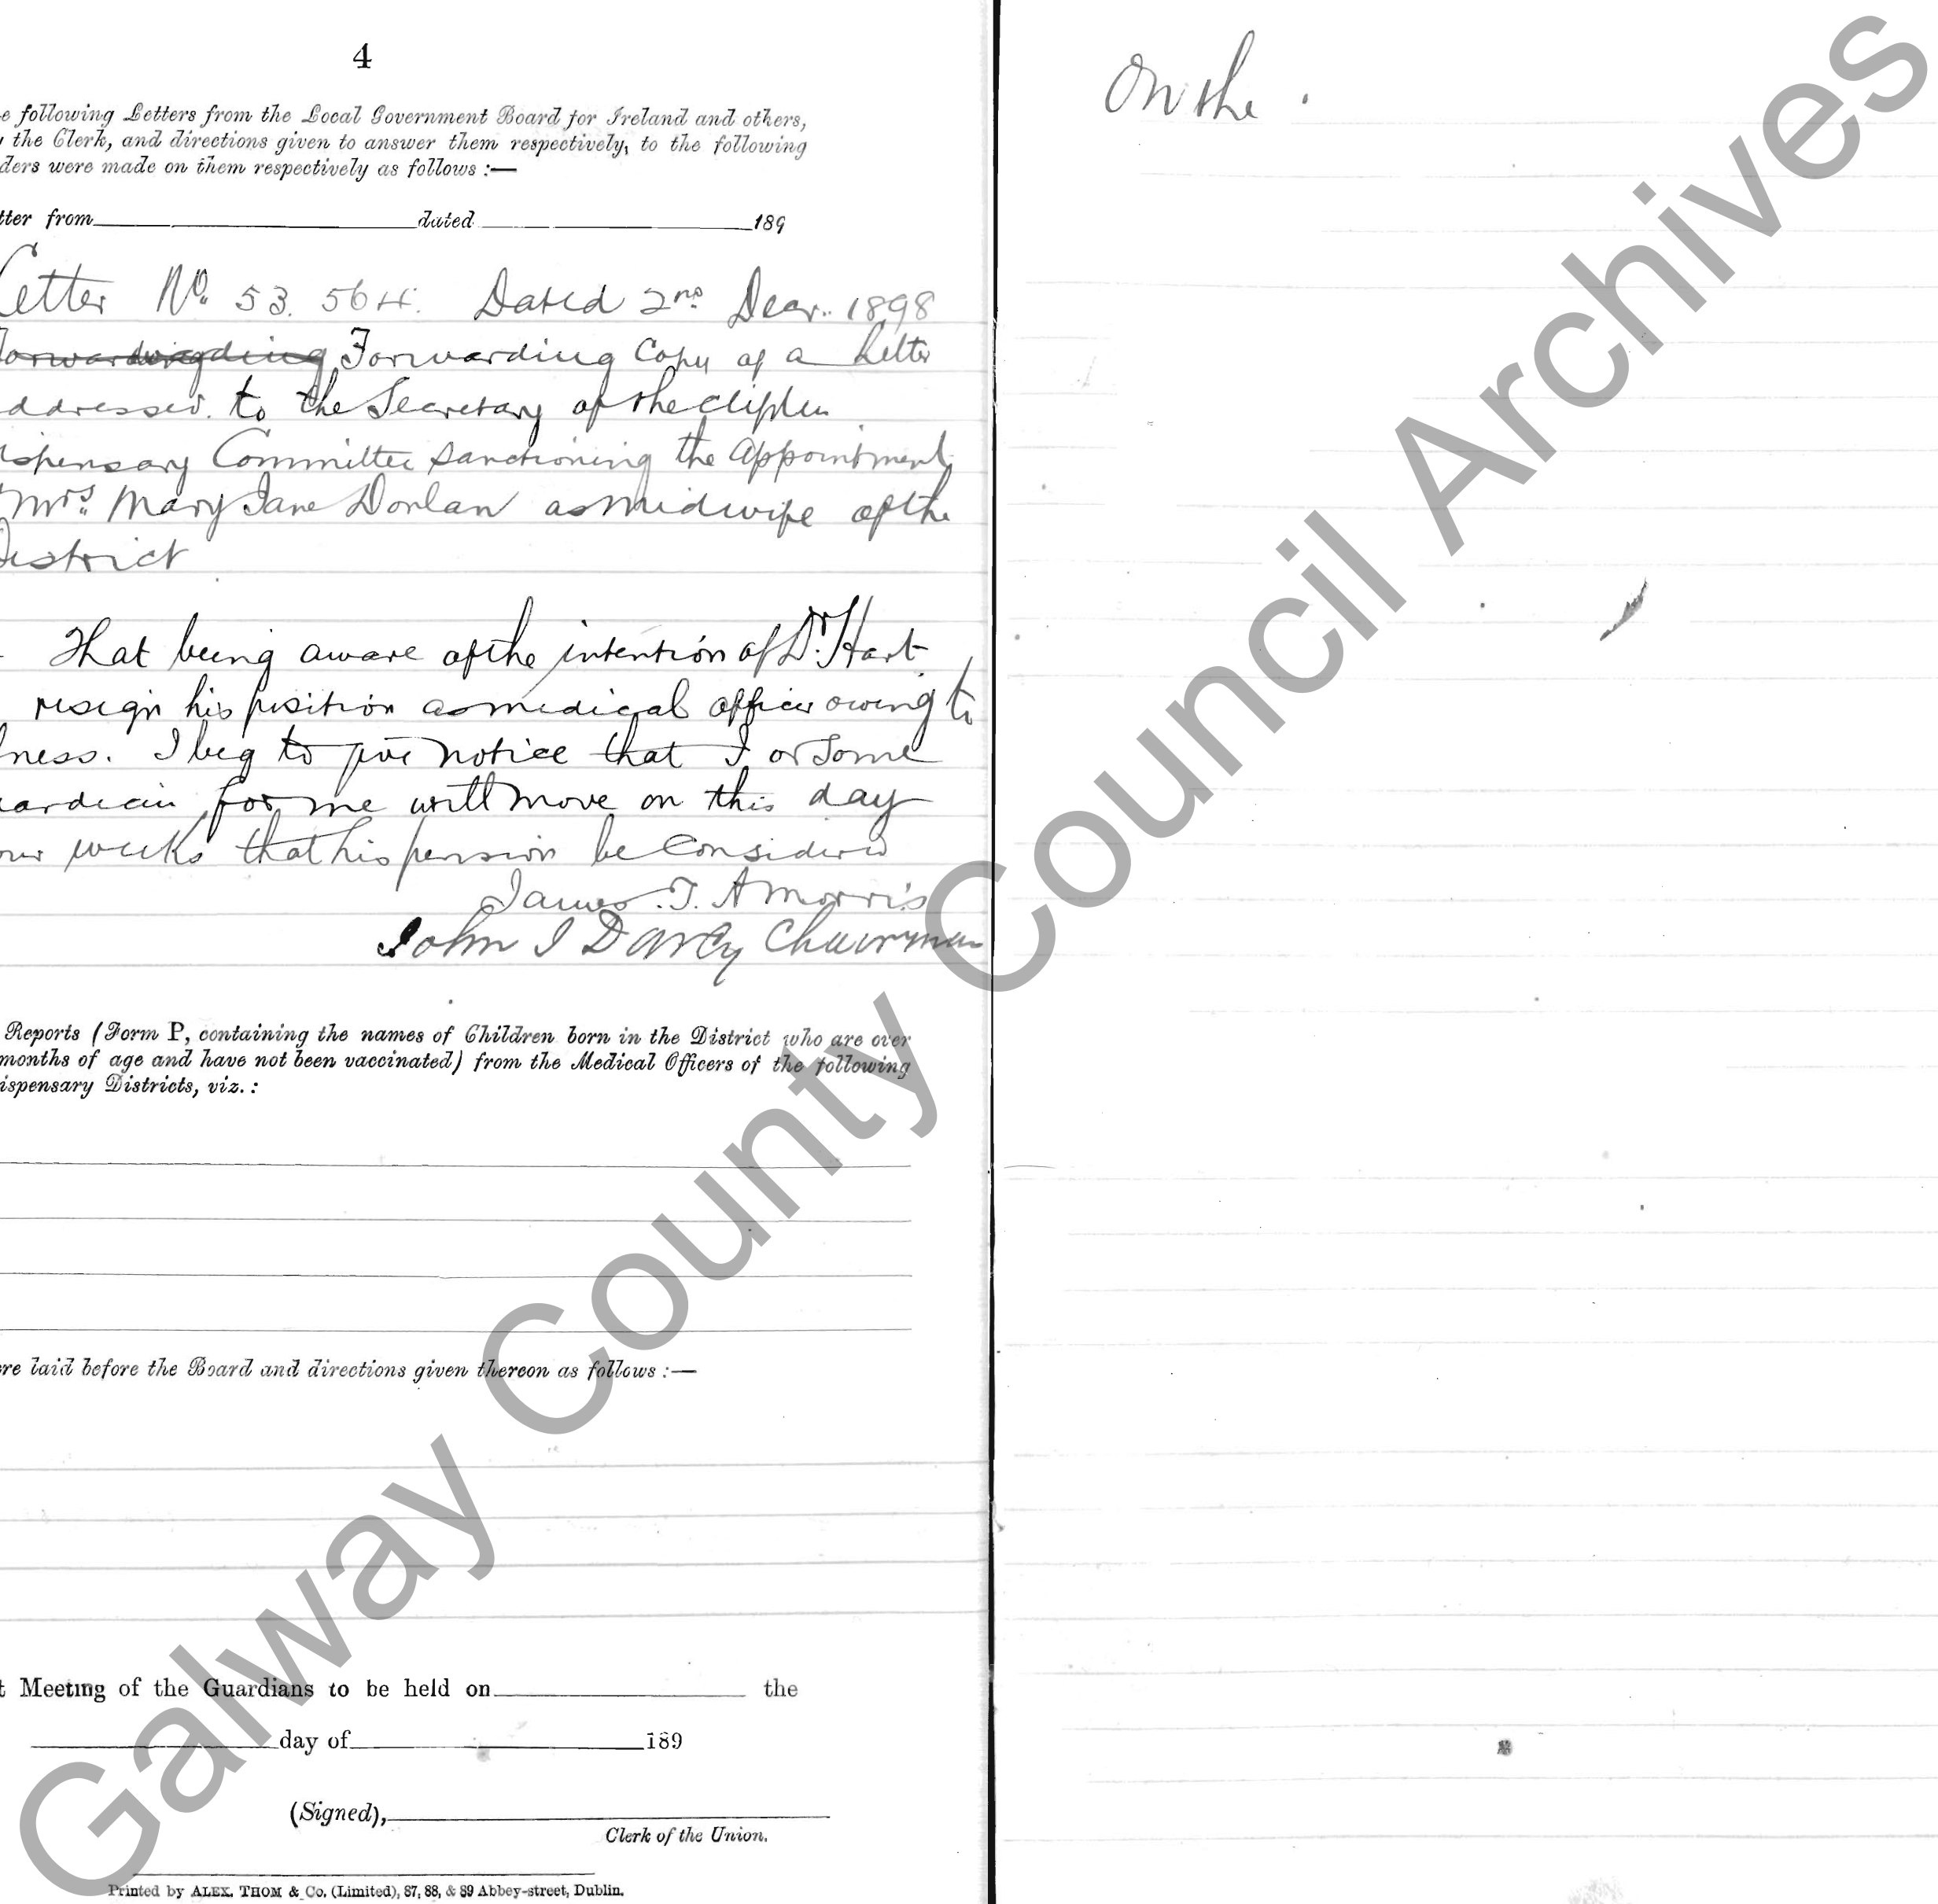 4
e following Letters from the Local Government Board for Ireland and others,
the Clerk, and directions given to answer them respectively, to the following
ders were made on them respectively as follows :—
tter from dated 189
Letter No. 53.564. Dated 2nd Decr. 1898
Forwarding Copy of a Letter
ddressed to the Secretary of the Clifden
ispensary Committee sanctioning the appointment
Mrs. Mary Jane Donlan as midwife of the
District
That being aware of the intention of Dr. Hart
resign his position as medical officer owing to
lness. I beg to give notice that I or some
uardian for me will move on this day
our weeks that his pension be considered
James T. A Morris
John J Darcy Chairman
Reports (Form P, containing the names of Children born in the District who are over
months of age and have not been vaccinated) from the Medical Officers of the following
ispensary Districts, viz. :
re laid before the Board and directions given thereon as follows :—
t Meeting of the Guardians to be held on the
day of 189
(Signed),
Clerk of the Union.
Printed by ALEX. THOM & Co. (Limited), 87, 88, & 89 Abbey-street, Dublin.
On the
Galway County Council Archives